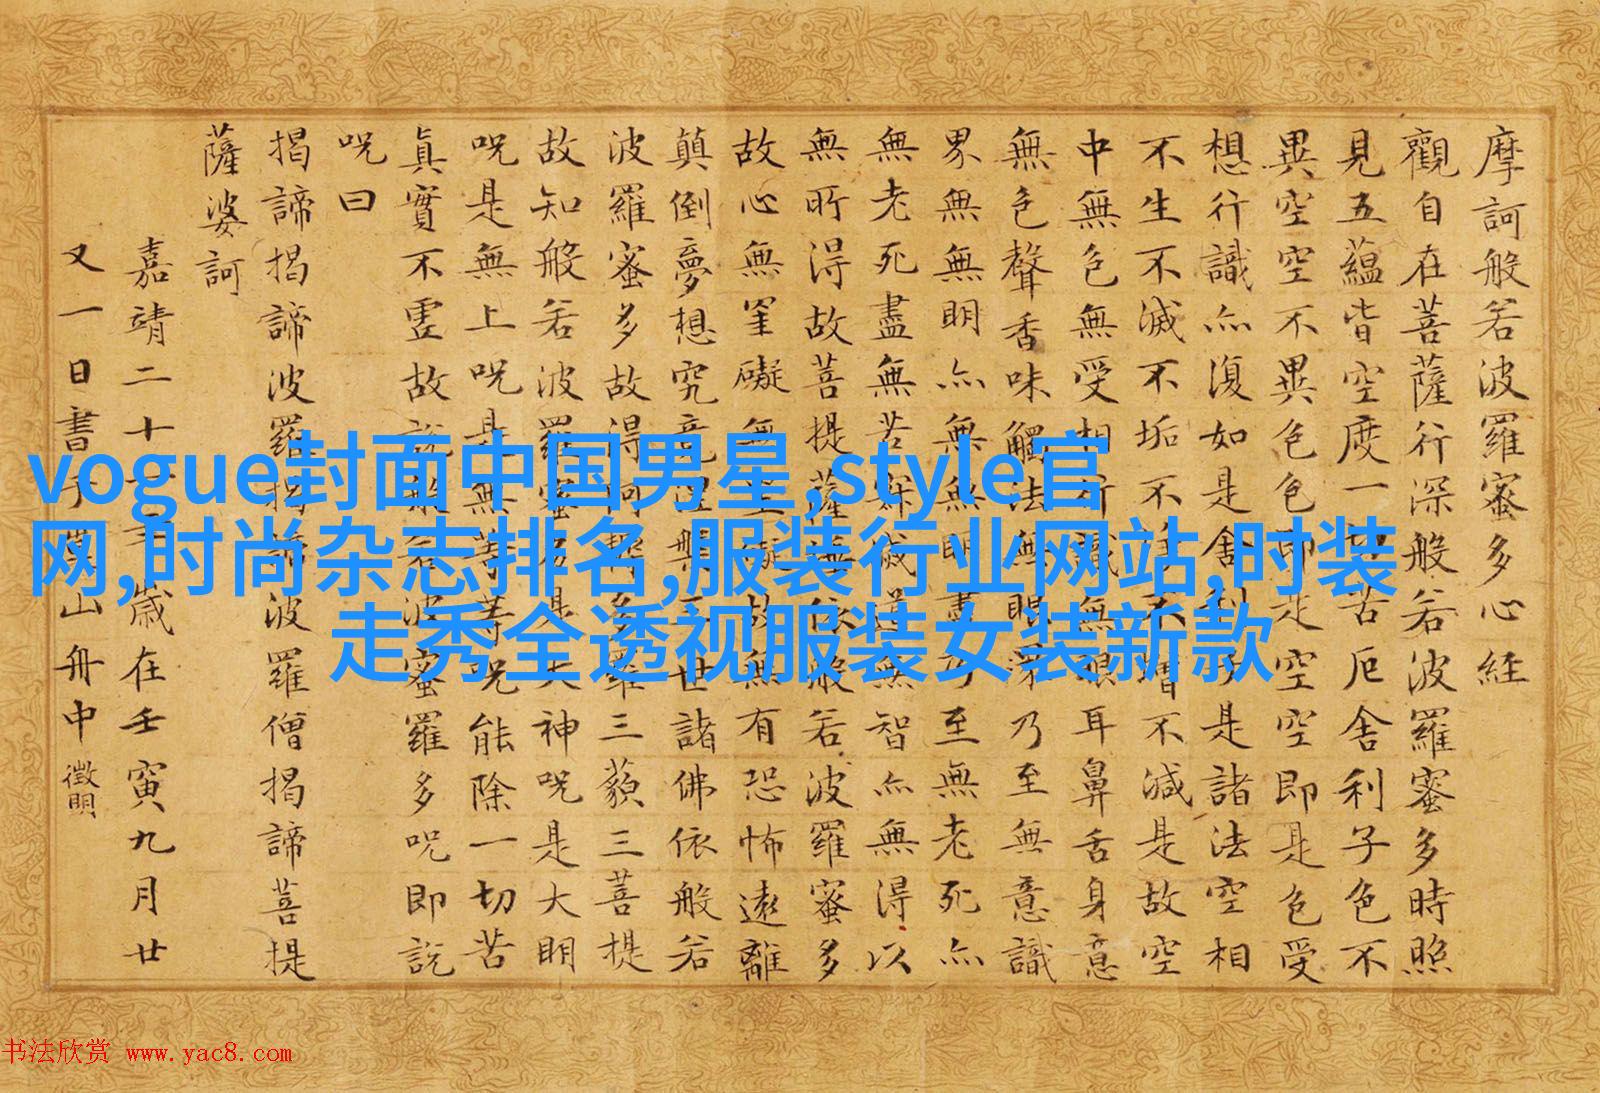 摩訶般若波羅蜜多心經
觀自在菩薩行深般若波羅蜜多時照
見五蘊皆空度一切苦厄舍利子色不
異空空不異色色即是空空即是色受
想行識亦復如是舍利子是諸法空相
不生不滅不垢不淨不增不減是故空
中無色無受想行識無眼耳鼻舌身意
無色聲香味觸法無眼界乃至無意識
界無無明亦無無明盡乃至無老死亦
無老死盡無苦集滅道無智亦無得以
無所得故菩提薩埵依般若波羅蜜多
故心無罣礙無罣礙故無有恐怖遠離
顛倒夢想究竟涅槃三世諸佛依般若
波羅蜜多故得阿耨多羅三藐三菩提
故知般若波羅蜜多是大神咒是大明
咒是無上咒是無等等咒能除一切苦
真實不虛故說般若波羅蜜多咒即説
咒曰
揭諦揭諦波羅揭諦波羅僧揭諦菩提
薩婆訶
嘉靖二十一年歲在壬寅九月廿
又一日書于山舟中 徵明
vogue封面中国男星,style官
网,时尚杂志排名,服装行业网站,时装
走秀全透视服装女装新款
书法欣赏 www.yac8.com